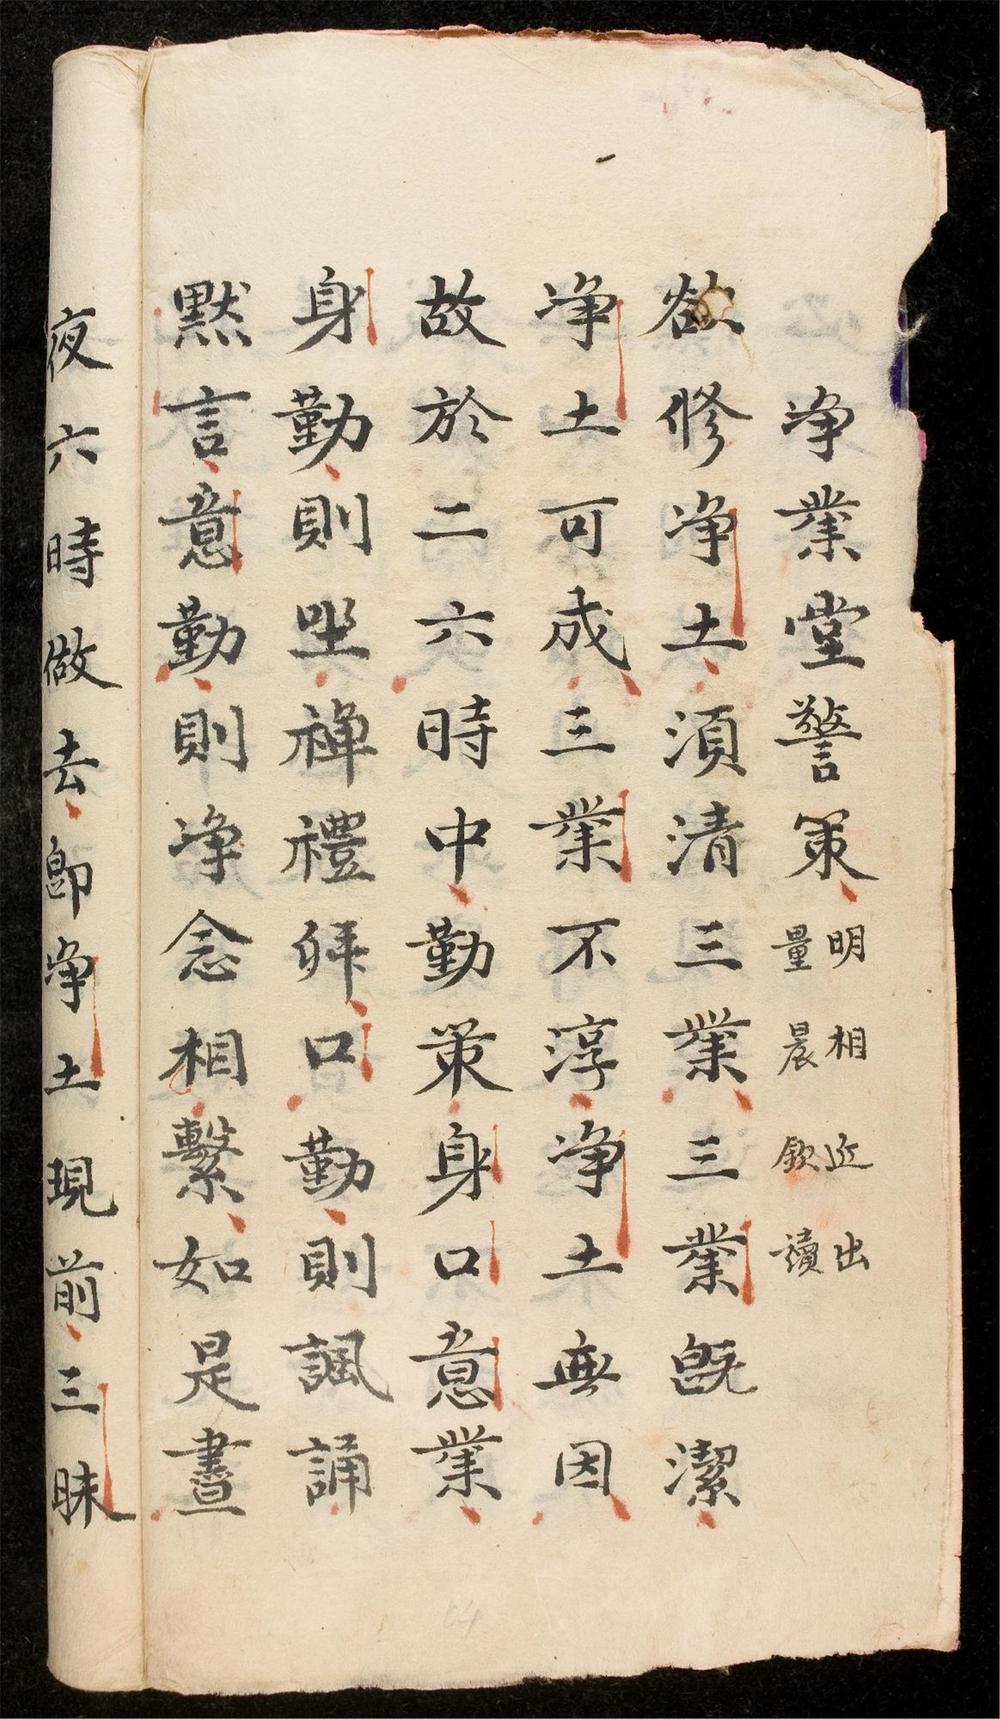 净業堂警策
明相近出
量晨欽讀
欲修净土須清三業三業既潔
净土可成三業不淳净土無因
故於二六時中勤策身口意業
身勤則坐禪禮拜口勤則諷誦
默言意勤則净念相繫如是晝
夜六時做去即净土現前三昧